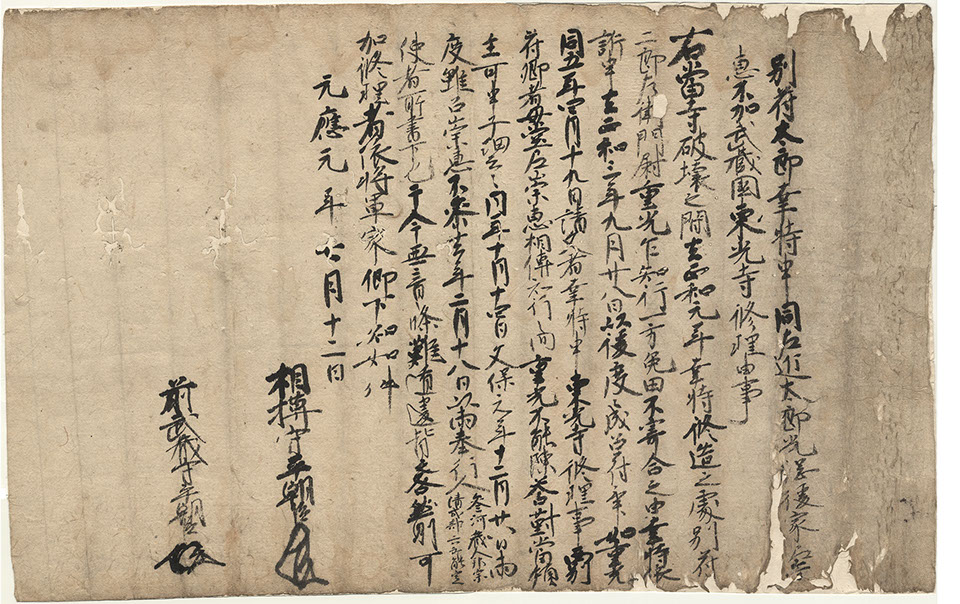 別符太郎幸時申同左近太郎光後家尼崇
恵不加武蔵國東光寺修理由事
右當寺破壊之間去正和元年幸時修造之處別符
二郎左衛門尉重光乍知行一方免田不寄合之由幸時依
訴申去正和三年九月廿八日以後度々成召符畢如重光
同五年四月十九日請文者幸時申東光寺修理事別
符郷者養母尼崇恵相傳知行間重光不能陳答對當領
主可申子細云々同年十月十四日文保元年十二月廿六日両
度雖召崇恵不参去年二月十八日以両奉行人参河蔵人
式部六郎
使者所書下也于今無音條難遁違背之咎然則可
加修理者依将軍家仰下知如件
元應元年七月十二日
相模守平朝臣
前武蔵守平朝臣